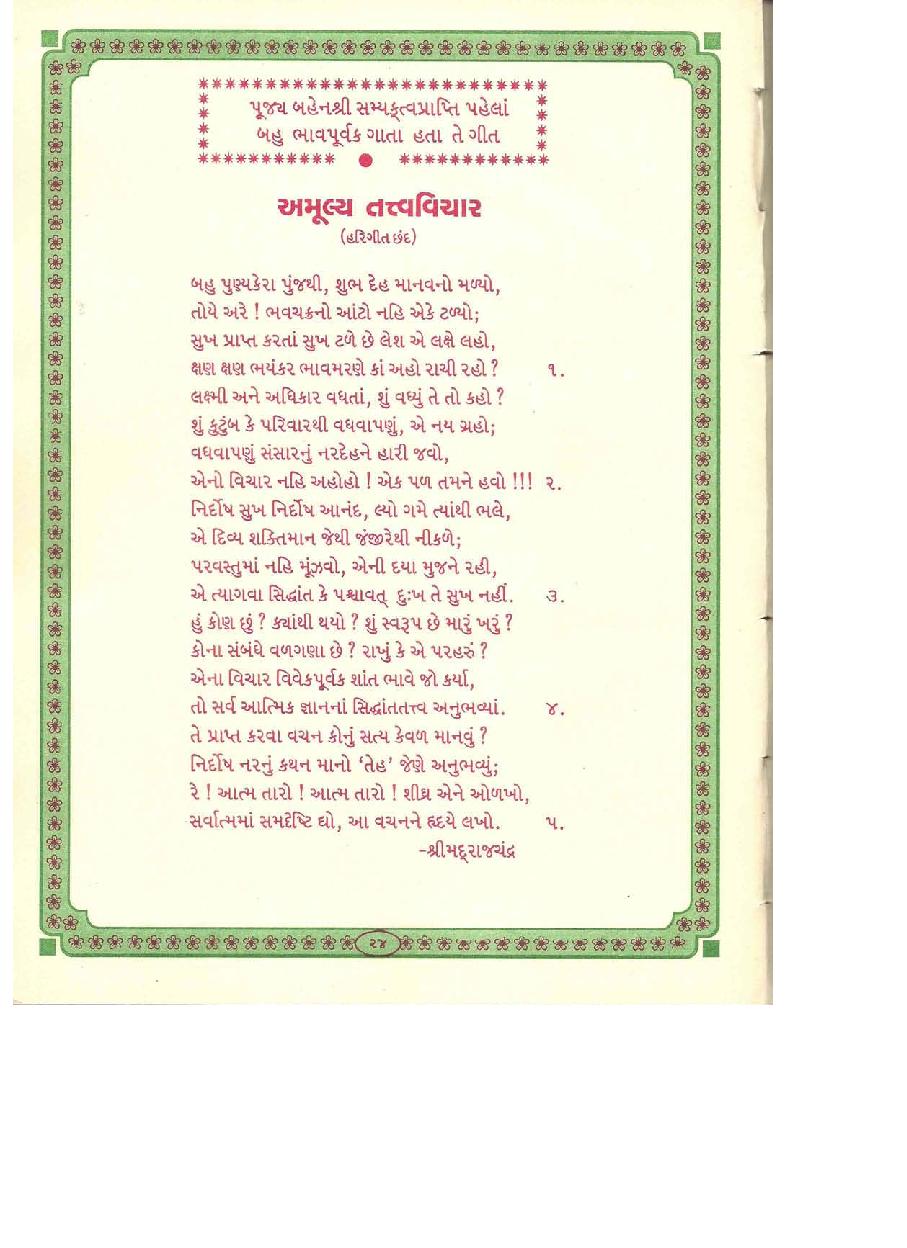 પૂજ્ય બહેનશ્રી સમ્યક્ત્વપ્રાપ્તિ પહેલાં
બહુ ભાવપૂર્વક ગાતા હતા તે ગીત
અમૂલ્ય તત્ત્વવિચાર
(હરિગીત છંદ)
બહુ પુણ્યકેરા પુંજથી, શુભ દેહ માનવનો મળ્યો,
તોયે અરે ! ભવચક્રનો આંટો નહિ એકે ટળ્યો;
સુખ પ્રાપ્ત કરતાં સુખ ટળે છે લેશ એ લક્ષે લહો,
ક્ષણ ક્ષણ ભયંકર ભાવમરણે કાં અહો રાચી રહો ? ૧.
લક્ષ્મી અને અધિકાર વધતાં, શું વધ્યું તે તો કહો ?
શું કુટુંબ કે પરિવારથી વધવાપણું, એ નય ગ્રહો;
વધવાપણું સંસારનું નરદેહને હારી જવો,
એનો વિચાર નહિ અહોહો ! એક પળ તમને હવો !!! ૨.
નિર્દોષ સુખ નિર્દોષ આનંદ, લ્યો ગમે ત્યાંથી ભલે,
એ દિવ્ય શક્તિમાન જેથી જંજીરેથી નીકળે;
પરવસ્તુમાં નહિ મૂંઝવો, એની દયા મુજને રહી,
એ ત્યાગવા સિદ્ધાંત કે પશ્ચાવત્ દુઃખ તે સુખ નહીં. ૩.
હું કોણ છું ? ક્યાંથી થયો ? શું સ્વરૂપ છે મારું ખરું ?
કોના સંબંધે વળગણા છે ? રાખું કે એ પરહરું ?
એના વિચાર વિવેકપૂર્વક શાંત ભાવે જો કર્યા,
તો સર્વ આત્મિક જ્ઞાનનાં સિદ્ધાંતતત્ત્વ અનુભવ્યાં. ૪.
તે પ્રાપ્ત કરવા વચન કોનું સત્ય કેવળ માનવું ?
નિર્દોષ નરનું કથન માનો ‘તેહ’ જેણે અનુભવ્યું;
રે ! આત્મ તારો ! આત્મ તારો ! શીઘ્ર એને ઓળખો,
સર્વાત્મમાં સમદૃષ્ટિ દ્યો, આ વચનને હૃદયે લખો. ૫.
-શ્રીમદ્‌રાજચંદ્ર
૨૪